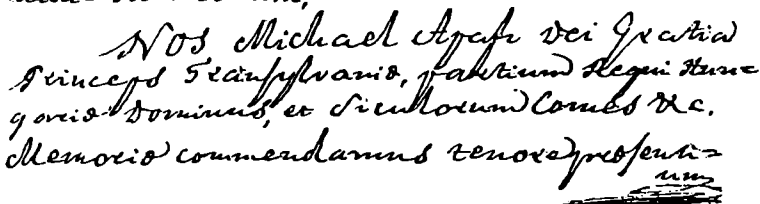 Nos Michael Apafi Dei Gratia
Princeps Transylvaniæ, partium Regni Hun=
gariæ Dominus, et Siculorum Comes &c.
Memoriæ commendamus tenore præsenti=
um